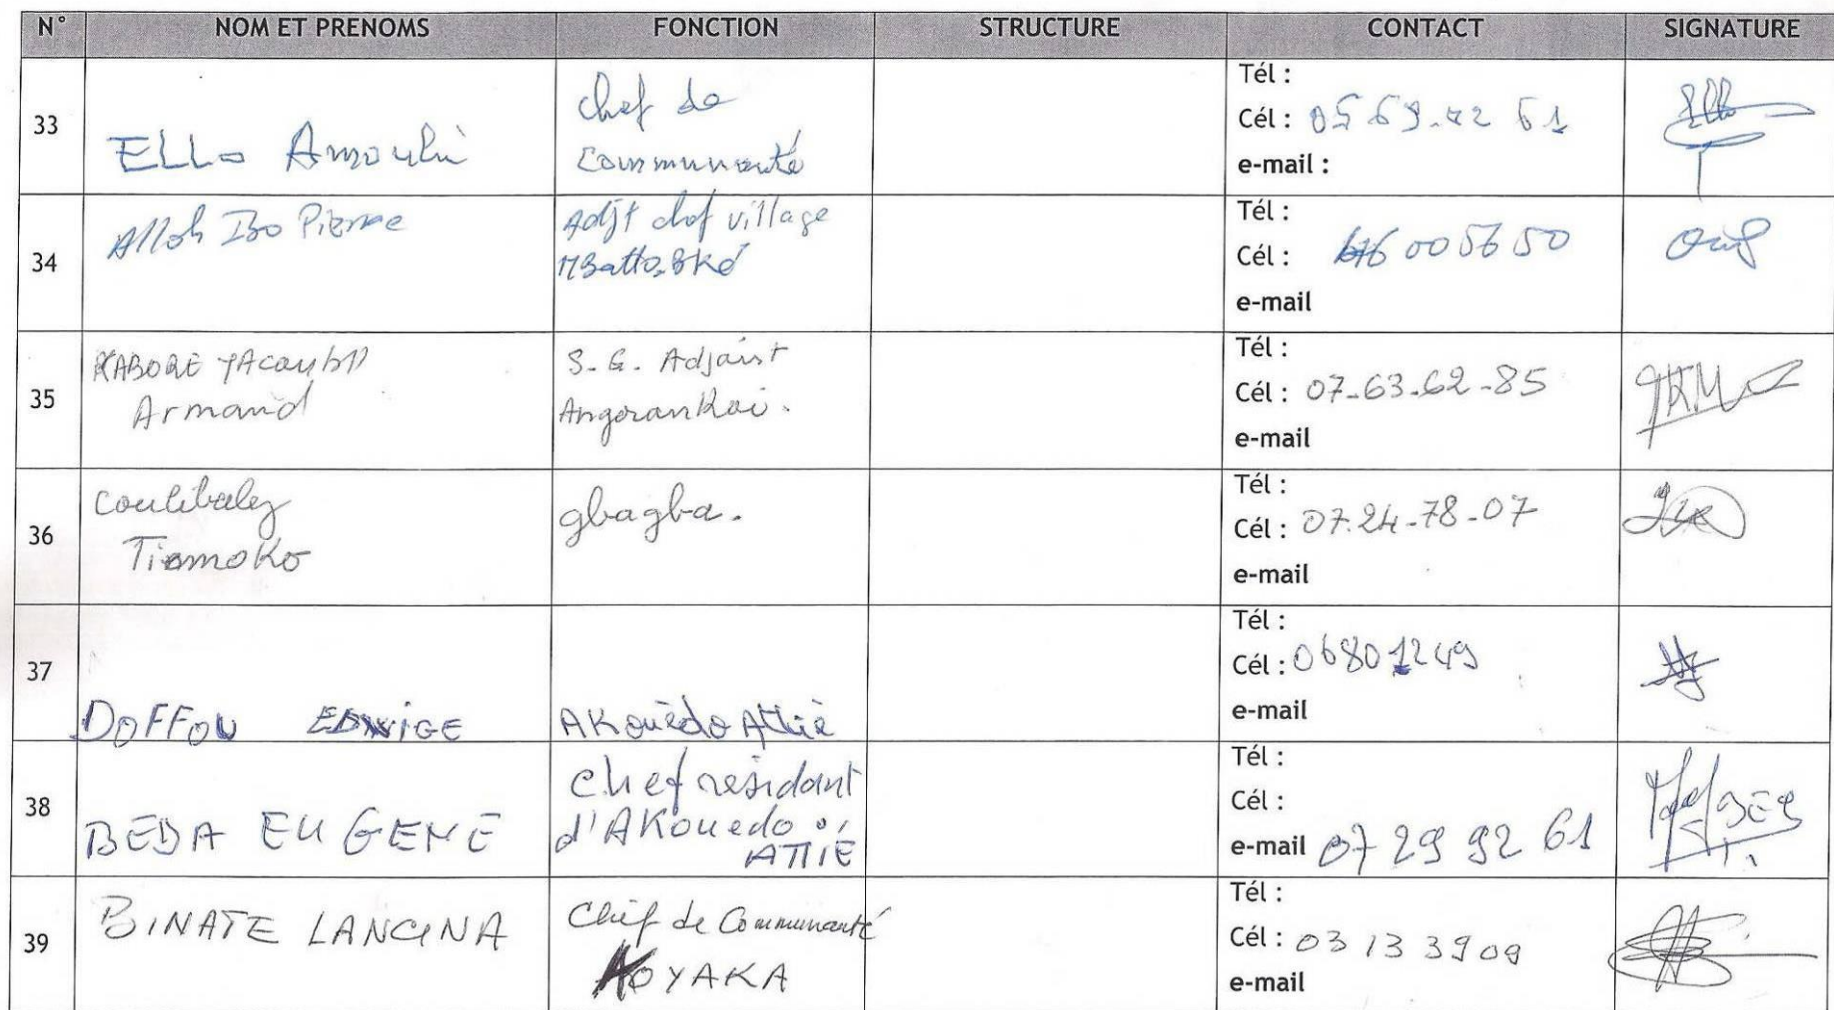 N° NOM ET PRENOMS FONCTION STRUCTURE CONTACT SIGNATURE
33
ELLO Amouhi
Chef de
Communauté
Tél :
Cél : 05 69.42 61
e-mail :
34
Alloh Ibo Pierre
Adjt chef village
M'Batto-Bké
Tél :
Cél : 005650
e-mail
35
KABORE YAcouba
Armand
S.G. Adjoint
Angorankoi.
Tél :
Cél : 07-63-62-85
e-mail
36
Coulibaly
Tiemoko
gbagba.
Tél :
Cél : 07.24-78-07
e-mail
37
DOFFOU EDWIGE
AKouèdo Attiè
Tél :
Cél : 06801249
e-mail
38
BEDA EUGENE
Chef residant
d'AKouedo
ATTIE
Tél :
Cél :
e-mail 07 29 92 61
39
BINATE LANCINA
Chef de Communauté
KOYAKA
Tél :
Cél : 03 13 39 09
e-mail